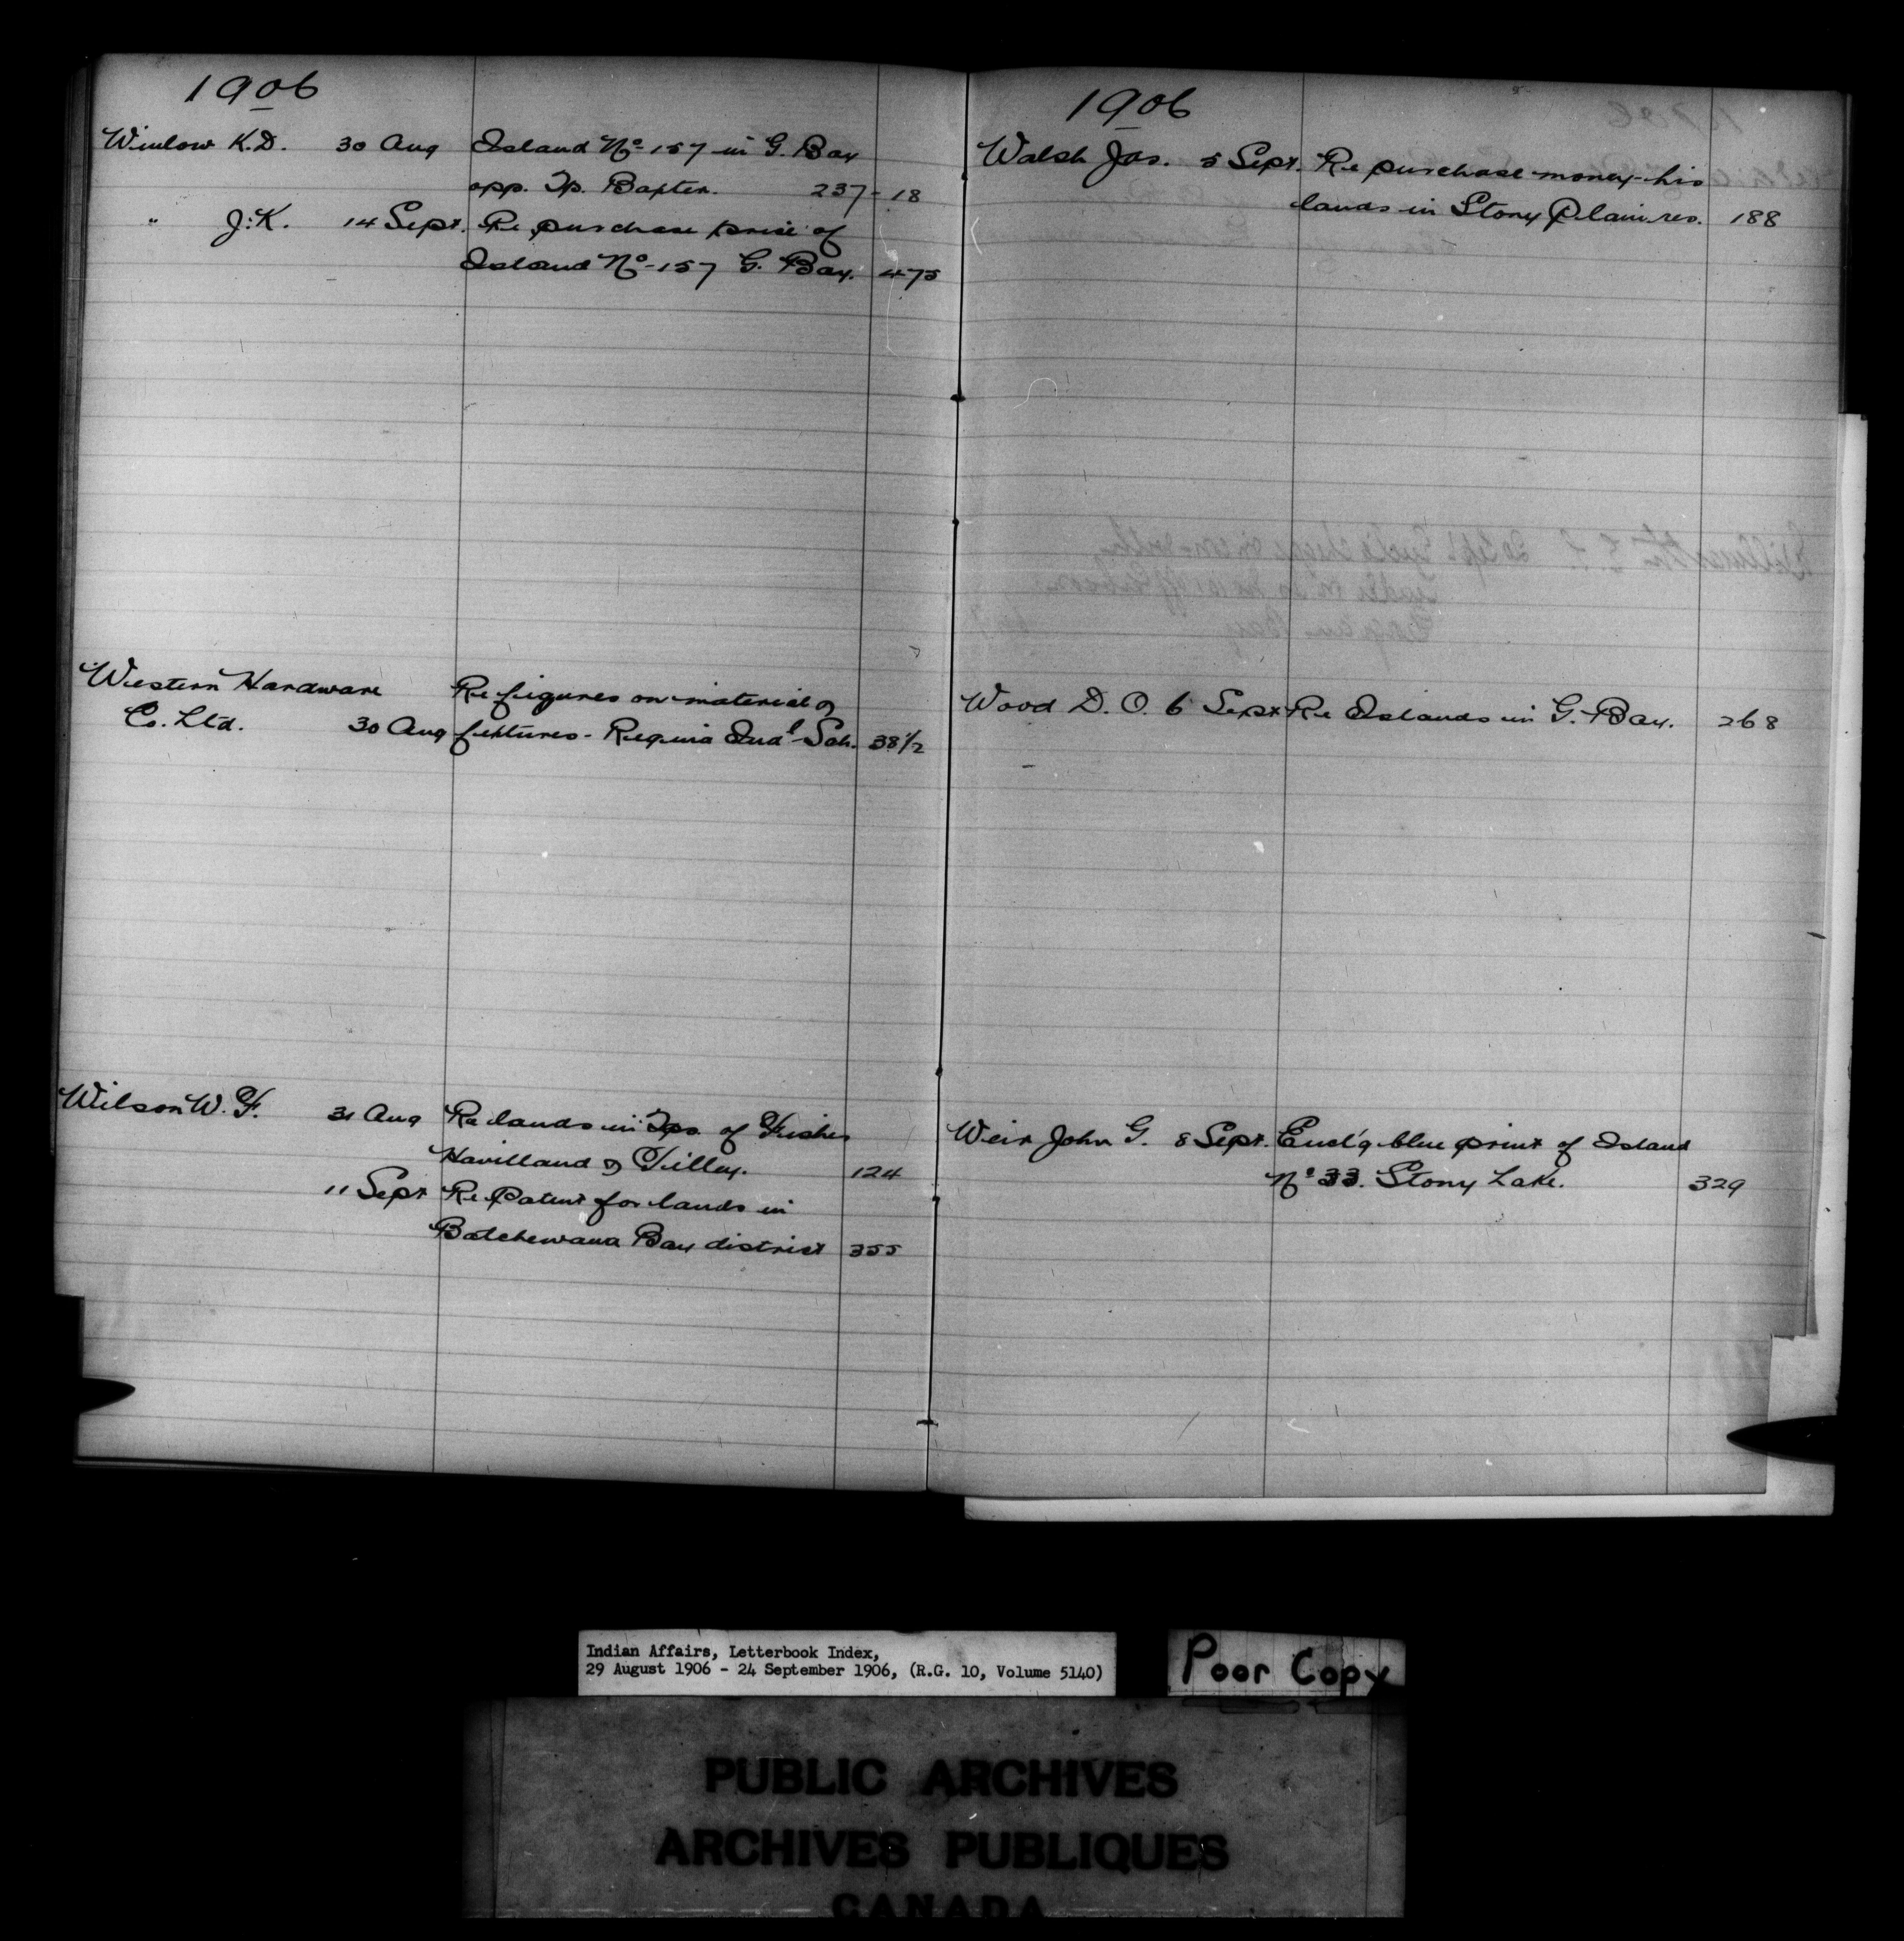 1906
Winlow K.D. 30 Aug Island No 157 in G. Bay
opp. Tp. Baxter. 237-18
" J.K. 14 Sept. Re purchase price of
Island No 157 G. Bay. 475
Western Hardware Re figures on material &
Co. Ltd. 30 Aug fixtures - Regina Indl Sch. 38 1/2
Wilson W. F. 31 Aug Re lands in Tps. of Fisher
Havilland & Tilley. 124
11 Sept Re Patent for lands in
Batchewana Bay district 355
1906
Walsh Jas. 5 Sept. Re purchase money his
lands in Stony Plain res. 188
Wood D. O. 6 Sept Re Islands in G. Bay. 268
Weir John G. 8 Sept. Encl'g blue print of Island
No 33. Stony Lake. 329
Indian Affairs, Letterbook Index,
29 August 1906 - 24 September 1906, (R.G. 10, Volume 5140)
Poor Copy
PUBLIC ARCHIVES
ARCHIVES PUBLIQUES
CANADA